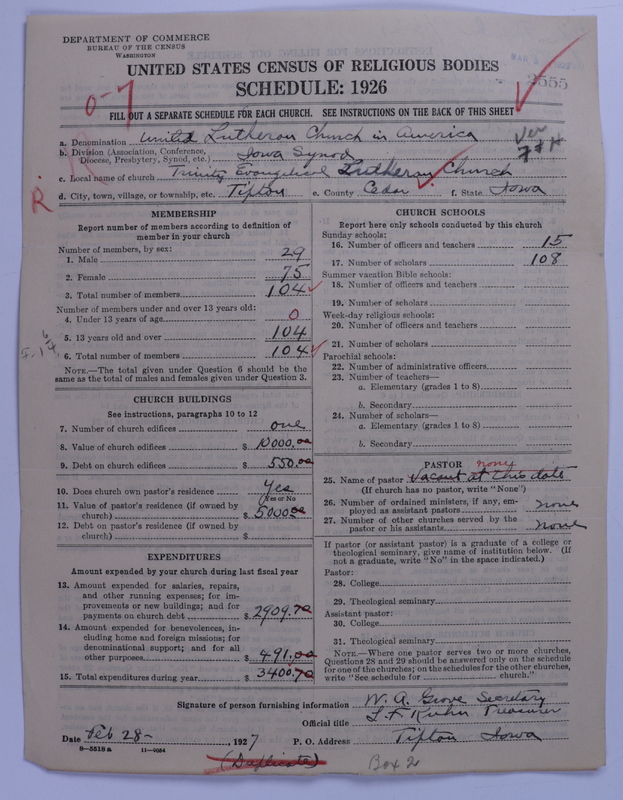 DEPARTMENT OF COMMERCE
BUREAU OF THE CENSUS
WASHINGTON
UNITED STATES CENSUS OF RELIGIOUS BODIES
SCHEDULE: 1926
3555
0-7
FILL OUT A SEPARATE SCHEDULE FOR EACH CHURCH. SEE INSTRUCTIONS ON THE BACK OF THIS SHEET
a. Denomination United Lutheran Church in America
b. Division (Association, Conference, Diocese, Presbytery, Synod, etc.) Iowa Synod
c. Local name of church Trinity Evangelical Lutheran Church
d. City, town, village, or township, etc. Tipton e. County Cedar f. State Iowa
R.
MEMBERSHIP
Report number of members according to definition of
member in your church
Number of members, by sex:
1. Male 29
2. Female 75
3. Total number of members 104
Number of members under and over 13 years old:
4. Under 13 years of age 0
5. 13 years old and over 104
6. Total number of members 104
NOTE.—The total given under Question 6 should be
same as the total of males and females given under Question 3.
CHURCH BUILDINGS
See instructions, paragraphs 10 to 12
7. Number of church edifices one
8. Value of church edifices $ 10000.00
9. Debt on church edifices $ 550.00
10. Does church own pastor's residence Yes
Yes or No
11. Value of pastor's residence (if owned by
church) $ 5000.00
12. Debt on pastor's residence (if owned by
church) $
EXPENDITURES
Amount expended by your church during last fiscal year
13. Amount expended for salaries, repairs,
and other running expenses; for im-
provements or new buildings; and for
payments on church debt $ 2909.70
14. Amount expended for benevolences, in-
cluding home and foreign missions; for
denominational support; and for all
other purposes $ 491.00
15. Total expenditures during year $ 3400.70
CHURCH SCHOOLS
Report here only schools conducted by this church
Sunday schools:
16. Number of officers and teachers 15
17. Number of scholars 108
Summer vacation Bible schools:
18. Number of officers and teachers
19. Number of scholars
Week-day religious schools:
20. Number of officers and teachers
21. Number of scholars
Parochial schools:
22. Number of administrative officers
23. Number of teachers—
a. Elementary (grades 1 to 8)
b. Secondary
24. Number of scholars—
a. Elementary (grades 1 to 8)
b. Secondary
PASTOR none
25. Name of pastor Vacant at this date
(If church has no pastor, write "None")
26. Number of ordained ministers, if any, em-
ployed as assistant pastors none
27. Number of other churches served by the
pastor or his assistants none
If pastor (or assistant pastor) is a graduate of a college or
theological seminary, give name of institution below. (If
not a graduate, write "No" in the space indicated.)
Pastor:
28. College
29. Theological seminary
Assistant pastor:
30. College
31. Theological seminary
NOTE.—Where one pastor serves two or more churches,
Questions 28 and 29 should be answered only on the schedule
for one of the churches; on the schedules for the other churches,
write "See schedule for church."
Signature of person furnishing information W. A. Grove Secretary
Official title L. F. Kuhn Treasurer
Date Feb 28- , 1927 P. O. Address Tipton Iowa
8-5518a 11-9034
(Duplicate)
Box 2